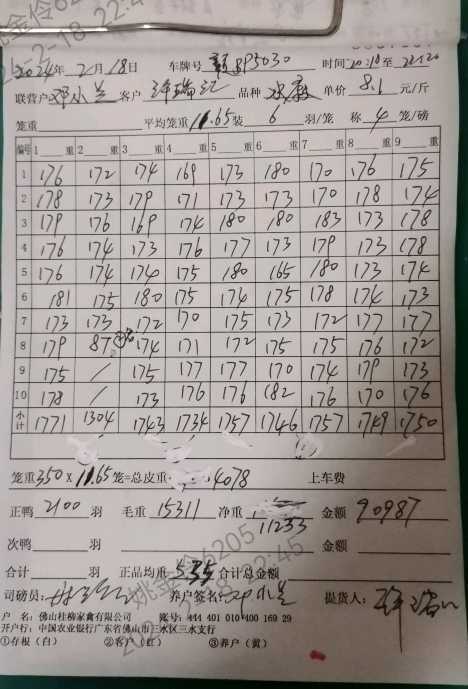 2024年2月18日 车牌号 时间20:10至22:20
联营户邓小兰 客户许瑞红 品种 单价8.1元/斤
笼重 平均笼重11.65装6羽/笼 称4笼/磅
编号 1 重 2 重 3 重 4 重 5 重 6 重 7 重 8 重 9 重
1 176 172 174 169 173 180 170 176 175
2 178 173 179 171 173 173 170 178 174
3 179 176 169 174 180 180 183 173 178
4 176 174 173 176 177 173 179 173 178
5 176 174 174 175 180 165 180 173 174
6 181 175 180 175 174 175 178 174 173
7 173 173 172 170 175 173 172 177 177
8 179 87 174 171 172 175 175 176 172
9 175 / 175 177 177 170 174 179 173
10 178 / 173 176 176 182 176 170 176
小计 1771 1304 1743 1734 1757 1746 1757 1749 1750
笼重350×11.65笼=总皮重4078 上车费
正鸭2100羽 毛重15311 净重11233 金额90987
次鸭 羽 金额
合计 羽 正品均重5.35合计总金额
司磅员: 养户签名:邓小兰 提货人:许瑞红
户 名:佛山桂柳家禽有限公司 账号:444 491 010 400 169 29
开户行:中国农业银行广东省佛山市三水区三水支行
①存根(白) ②客户(红) ③养户(黄)
姚金伶6205